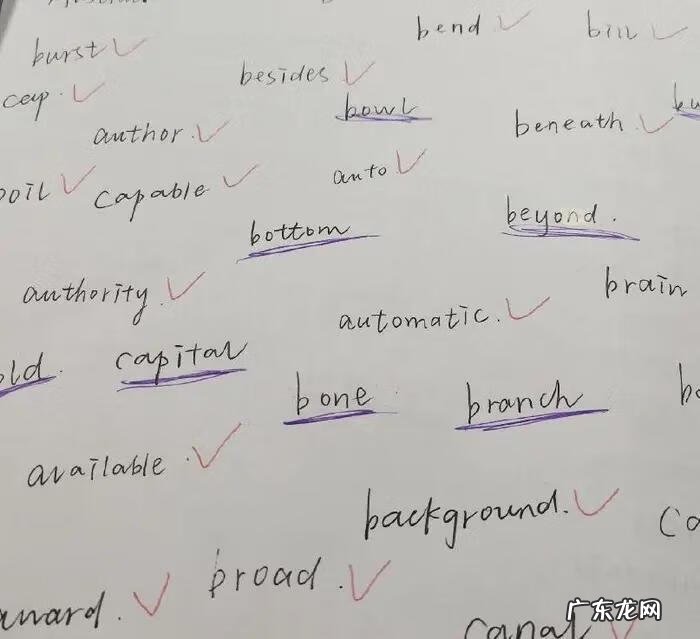 bend bill
burst
besides
cap
bowl
author
beneath
boil capable auto
bottom
beyond.
authority
automatic. brain
capital
bone branch
available
background.
broad.
canal
广东龙网